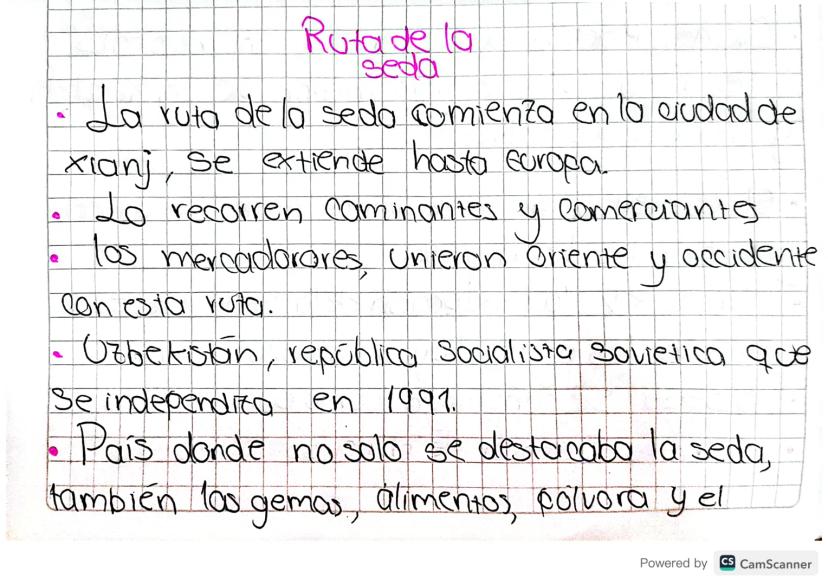 Ruta de la
seda
· La ruta de la seda comienza en la ciudad de
xianj, se extiende hasta europa.
· La recorren caminantes y comerciantes
· los mercadorores, unieron oriente y occidente
con esta ruta.
· Uzbekistán, república socialista sovietica que
se independiza en 1991.
· País donde no solo se destacaba la seda,
también las gemas, alimentos, pólvora y el
Powered by CS CamScanner